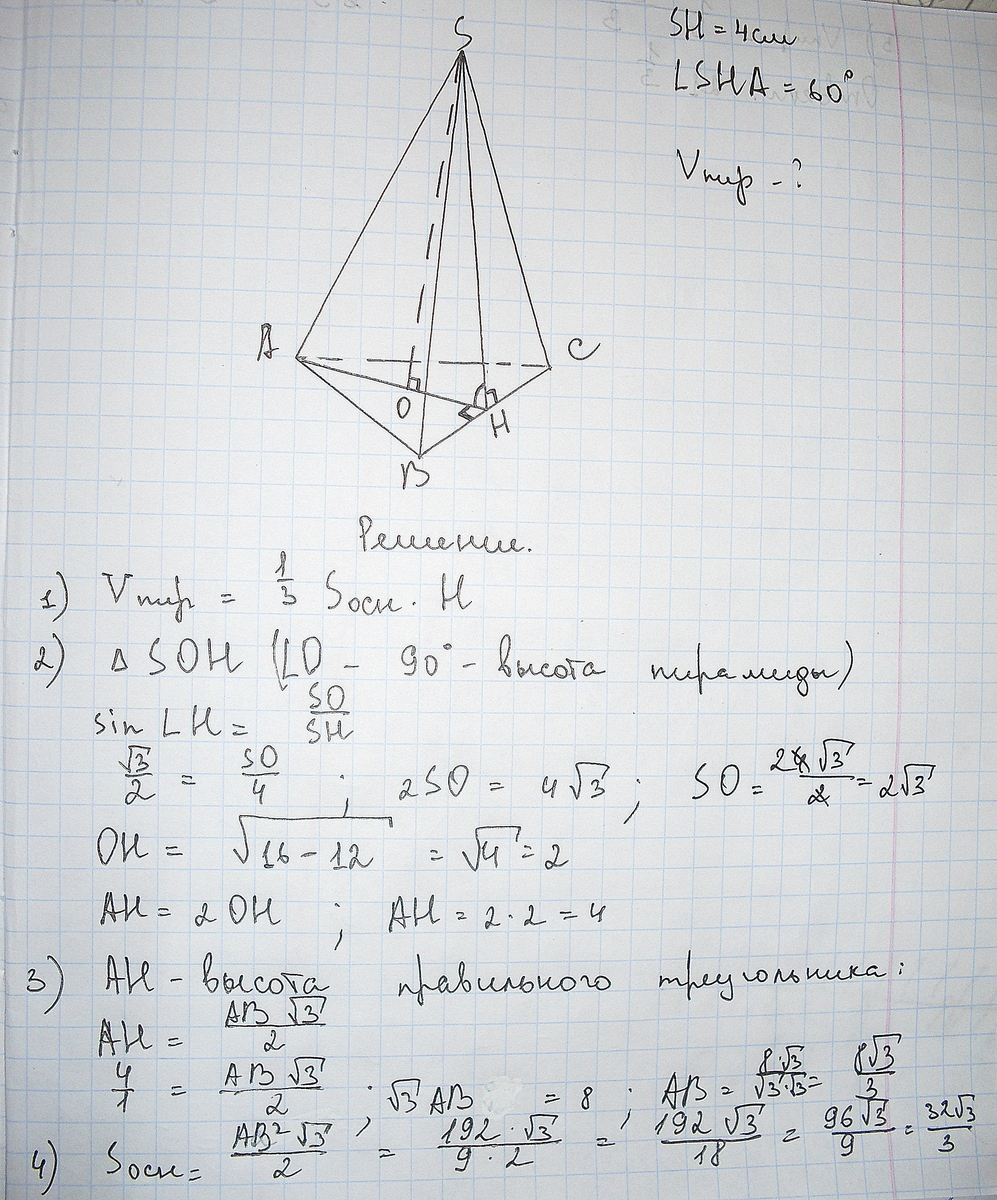 S
SH = 4 см
∠SHA = 60°
Vпир - ?
A
C
O
H
B
Решение.
1) Vпир = 1/3 Sосн · H
2) Δ SOH (∠O - 90° - высота пирамиды)
sin ∠H = SO/SH
√3/2 = SO/4 ; 2SO = 4√3 ; SO = 24√3/2 = 2√3
OH = √(16 - 12) = √4 = 2
AH = 2 OH ; AH = 2 · 2 = 4
3) AH - высота правильного треугольника:
AH = AB √3/2
4/1 = AB √3/2 ; √3 AB = 8 ; AB = 8·√3/√3·√3 = 8√3/3
4) Sосн = AB² √3/2 = 192 · √3/9 · 2 = 192 √3/18 = 96 √3/9 = 32√3/3